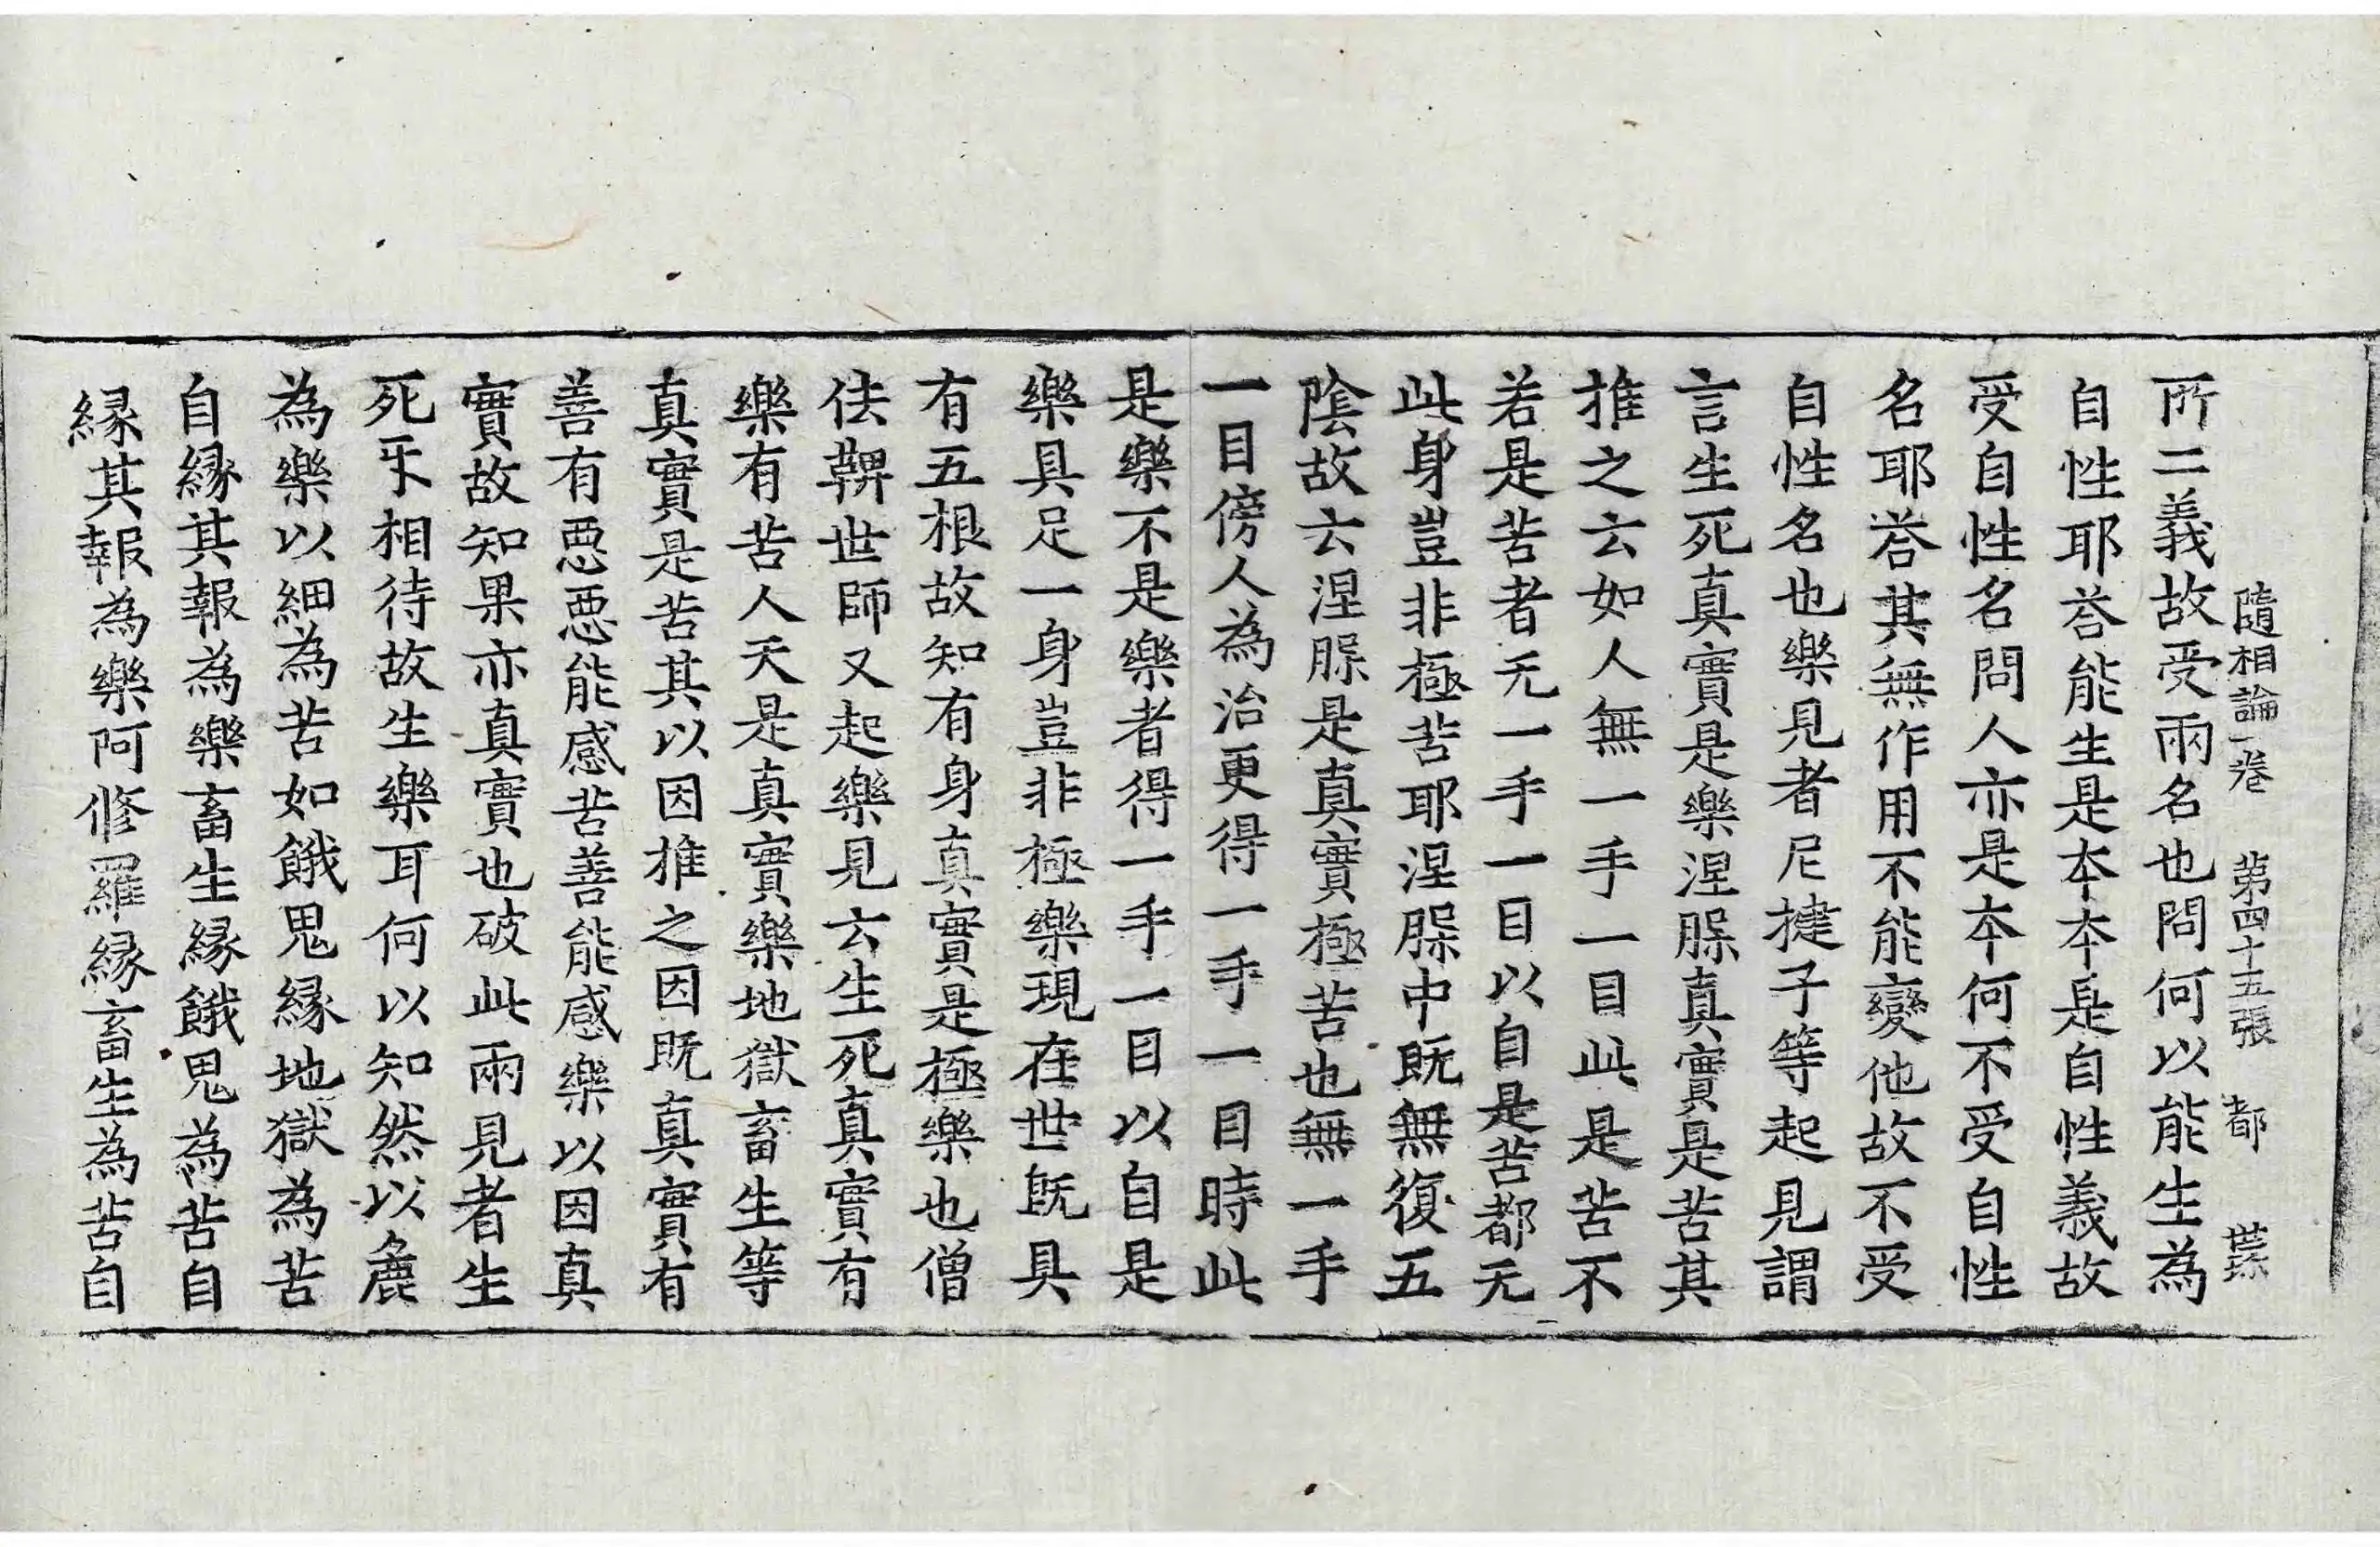 隨相論一卷　第四十五張　都
所二義故受兩名也問何以能生為
自性耶荅能生是夲夲是自性義故
受自性名問人亦是夲何不受自性
名耶荅其無作用不能變他故不受
自性名也樂見者尼揵子等起見謂
言生死真實是樂涅膎真實是苦其
推之云如人無一手一目此是苦不
若是苦者无一手一目以自是苦都无
此身豈非極苦耶涅膎中既無復五
陰故云涅膎是真實極苦也無一手
一目傍人為治更得一手一目時此
是樂不是樂者得一手一目以自是
樂具足一身豈非極樂現在世既具
有五根故知有身真實是極樂也僧
佉鞞世師又起樂見云生死真實有
樂有苦人天是真實樂地獄畜生等
真實是苦其以因推之因既真實有
善有惡惡能感苦善能感樂以因真
實故知果亦真實也破此兩見者生
死㸦相待故生樂耳何以知然以麁
為樂以細為苦如餓鬼緣地獄為苦
自緣其報為樂畜生緣餓鬼為苦自
緣其報為樂阿修羅緣畜生為苦自